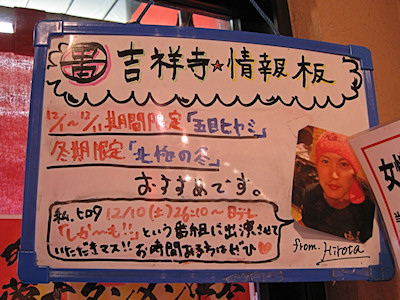 吉祥寺☆情報板
12/1〜12/11期間限定「五目ヒヤミ」
冬期限定「北極の冬」
おすすめです。
私、ヒロタ 12/10(土)26:10〜日テレ
「しか〜も!!」という番組に出演させて
いただきマス!! お時間あるちはぜひ♥
from. Hirota
女性